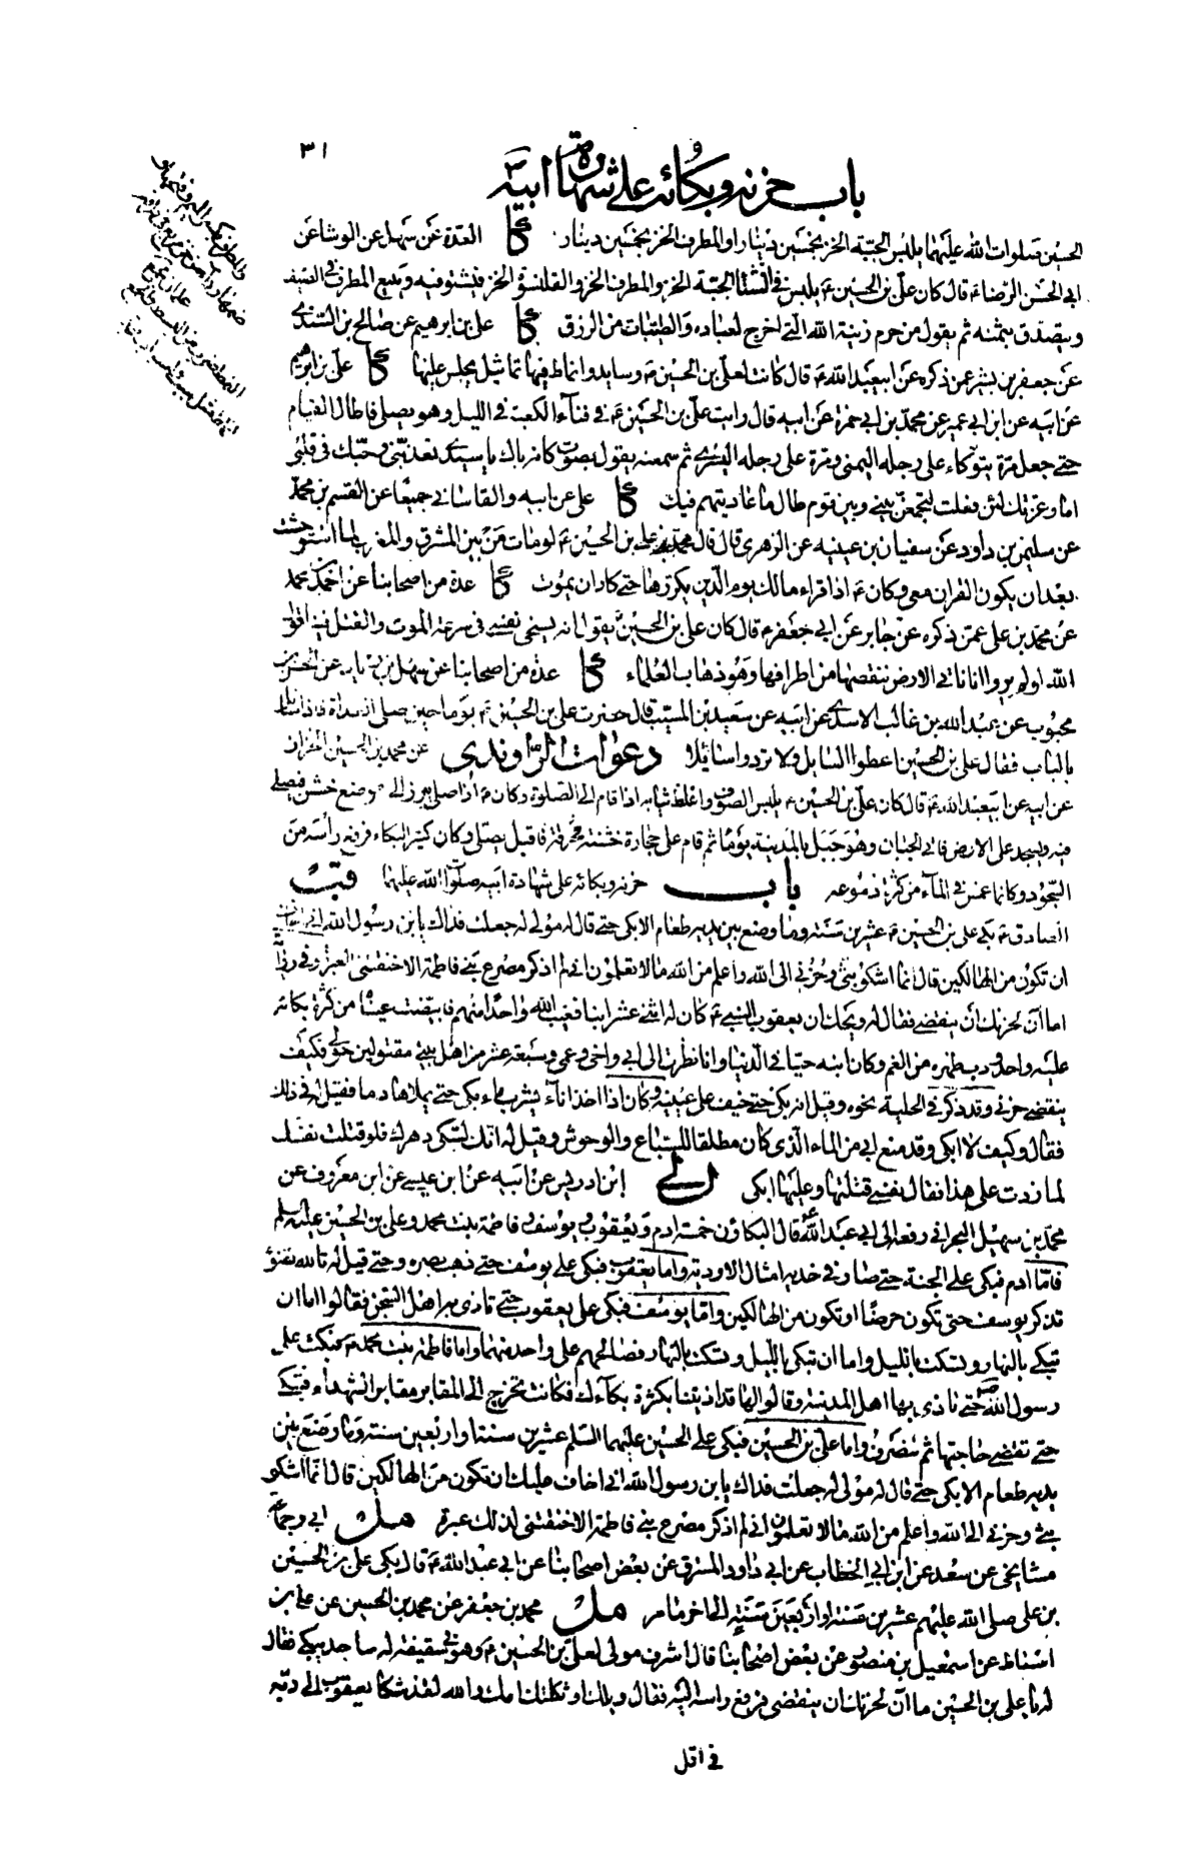 ٣١
باب حزنه وبكائه على شهادة ابيه
الحسين صلوات الله عليهما يلبس الجبة الخز بخمسين دينار او المطرف الخز بخمسين دينار كا العدة عن سهل عن الوشا عن
ابى الحسن الرضا ع قال كان على بن الحسين ع يلبس فى الشتا الجبة الخز والمطرف الخز والقلنسوة الخز فيشتو فيه ويبيع المطرف فى الصيف
ويتصدق بثمنه ثم يقول من حرم زينة الله التى اخرج لعباده والطيبات من الرزق كا على بن ابرهيم عن صالح بن السندى
عن جعفر بن بشير عمن ذكره عن ابيعبد الله ع قال كانت لعلى بن الحسين ع وسايد وانماط فيها تماثيل يجلس عليها كا على بن ابرهيم
عن ابيه عن ابن ابى عمير عن محمد بن ابى حمزة عن ابيه قال رايت على بن الحسين ع فى فنآء الكعبة فى الليل وهو يصلى فاطال القيام
حتى جعل مرة يتوكاء على رجله اليمنى ومرة على رجله اليسرى ثم سمعته يقول بصوت كانه باك يا سيدى تعذبنى وحبك فى قلبى
اما وعزتك لئن فعلت لتجمعن بينى وبين قوم طال ما عاديتهم فيك كا على عن ابيه والقاسانى جميعًا عن القسم بن محمد
عن سليمن بن داود عن سفيان بن عيينه عن الزهرى قال قال على بن الحسين ع لو مات من بين المشرق والمغرب لما استوحشت
بعد ان يكون القران معى وكان ع اذا قراء مالك يوم الدين يكررها حتى كاد ان يموت كا عدة من اصحابنا عن احمد بن محمد
عن محمد بن على عمن ذكره عن جابر عن ابى جعفر ع قال كان على بن الحسين ع يقول انه يسخى نفسى فى سرعة الموت والقتل فينا قول
الله اولم يروا انا ناتى الارض ننقصها من اطرافها وهو ذهاب العلماء كا عدة من اصحابنا عن سهل بن زياد عن الحسن بن
محبوب عن عبد الله بن غالب الاسدى عن ابيه عن سعيد بن المسيب قال حضرت على بن الحسين ع يوما حين صلى الغداة فاذا سائل
بالباب فقال على بن الحسين اعطوا السايل ولا تردوا سائلا دعوات الراوندى عن محمد بن الحسين الخراز
عن ابيه عن ابيعبد الله ع قال كان على بن الحسين ع يلبس الصوف واغلظ ثيابه اذا قام الى الصلوة وكان ع اذا صلى يبرز الى موضع خشن فيصلى
فيه ويسجد على الارض فاتى الجبان وهو جبل بالمدينة يومًا ثم قام على حجارة خشنة محرقة فاقبل يصلى وكان كثير البكاء فرفع رأسه من
السجود وكانما غمس فى المآء من كثرة دموعه باب حزنه وبكائه على شهادة ابيه صلوات الله عليهما قب
الصادق ع بكى على بن الحسين ع عشرين سنة وما وضع بين يديه طعام الا بكى حتى قال له مولى له جعلت فداك يا بن رسول الله انى اخاف
ان تكون من الهالكين قال انما اشكو بثى وحزنى الى الله واعلم من الله ما لا تعلمون انى لم اذكر مصرع بنى فاطمة الا خنقتنى العبرة وفى رواية
اما آن لحزنك ان ينقضى فقال له ويحك ان يعقوب النبى ع كان له اثنى عشر ابنا فغيب الله واحدًا منهم فابيضت عيناه من كثرة بكائه
عليه واحدودب ظهره من الغم وكان ابنه حيا فى الدنيا وانا نظرت الى ابى واخى وعمى وسبعة عشر من اهل بيتى مقتولين حولى فكيف
ينقضى حزنى وقد ذكر فى الحلية نحوه وقيل انه بكى حتى خيف على عينيه وكان اذا اخذ انآء يشرب ماء بكى حتى يملاها دما فقيل له فى ذلك
فقال وكيف لا ابكى وقد منع ابى من الماء الذى كان مطلقا للسباع والوحوش وقيل له انك لتبكى دهرك فلو قتلت نفسك
لما زدت على هذا فقال نفسى قتلتها وعليها ابكى لى ابن ادريس عن ابيه عن ابن عيسى عن ابن معروف عن
محمد بن سهيل البحرانى رفعه الى ابى عبد الله ع قال البكاؤن خمسة ادم ويعقوب ويوسف وفاطمة بنت محمد وعلى بن الحسين عليهم السلم
فاما ادم فبكى على الجنة حتى صار فى خديه امثال الاودية واما يعقوب فبكى على يوسف حتى ذهب بصره وحتى قيل له تالله تفتؤ
تذكر يوسف حتى تكون حرضًا او تكون من الهالكين واما يوسف فبكى على يعقوب حتى تاذى به اهل السجن فقالوا اما ان
تبكى بالنهار وتسكت بالليل واما ان تبكى بالليل وتسكت بالنهار فصالحهم على واحد منهما واما فاطمة بنت محمد ع فبكت على
رسول الله ص حتى تاذى بها اهل المدينة وقالوا لها قد اذيتنا بكثرة بكآءك فكانت تخرج الى المقابر مقابر الشهداء فتبكى
حتى تقضى حاجتها ثم تنصرف واما على بن الحسين فبكى على الحسين عليهما السلم عشرين سنة او اربعين سنة وما وضع بين
يديه طعام الا بكى حتى قال له مولى له جعلت فداك يا بن رسول الله انى اخاف عليك ان تكون من الهالكين قال انما اشكو
بثى وحزنى الى الله واعلم من الله ما لا تعلمون انى لم اذكر مصرع بنى فاطمة الا خنقتنى لذلك عبرة مل ابى وجماعة
مشايخى عن سعد عن ابن ابى الخطاب عن ابى داود المسترق عن بعض اصحابنا عن ابى عبد الله ع قال بكى على بن الحسين
بن على صلى الله عليهم عشرين سنة او اربعين سنة الى اخر ما مر مل محمد بن جعفر عن محمد بن الحسين عن على بن
اسباط عن اسمعيل بن منصور عن بعض اصحابنا قال اشرف مولى لعلى بن الحسين ع وهو فى سقيفة له ساجد يبكى فقال
له يا على بن الحسين ما آن لحزنك ان ينقضى فرفع راسه اليه فقال ويلك او ثكلتك امك والله لقد شكا يعقوب الى ربه
فى اقل